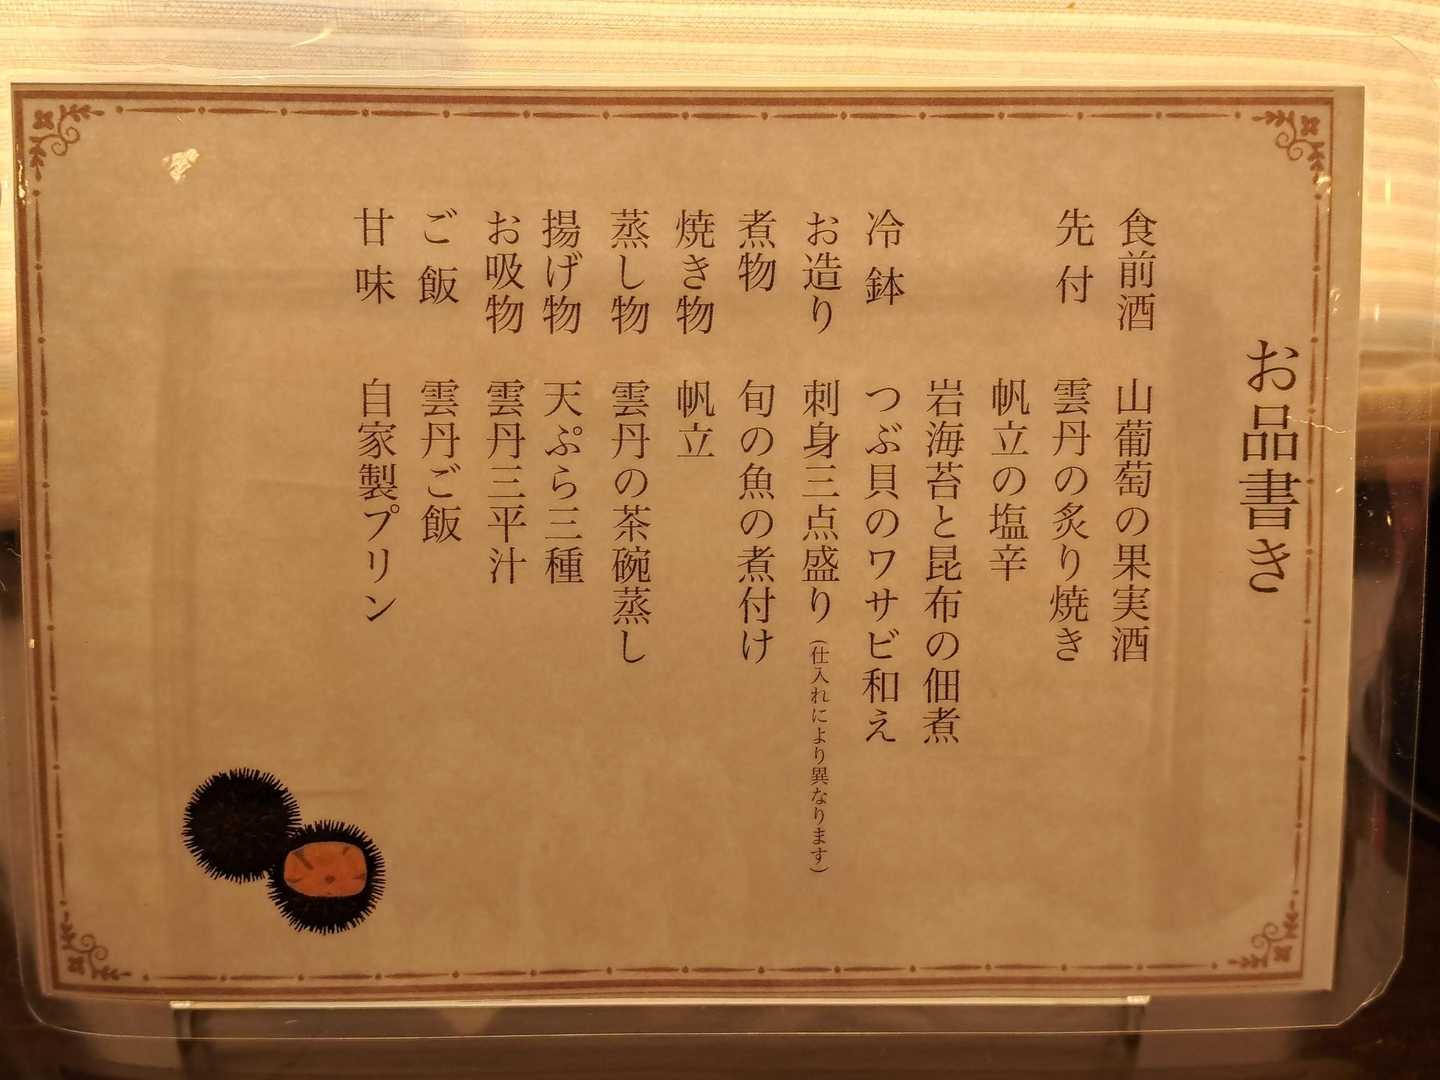 お品書き
食前酒 山葡萄の果実酒
先付 雲丹の炙り焼き
帆立の塩辛
岩海苔と昆布の佃煮
冷鉢 つぶ貝のワサビ和え
お造り 刺身三点盛り(仕入れにより異なります)
煮物 旬の魚の煮付け
焼き物 帆立
蒸し物 雲丹の茶碗蒸し
揚げ物 天ぷら三種
お吸物 雲丹三平汁
ご飯 雲丹ご飯
甘味 自家製プリン